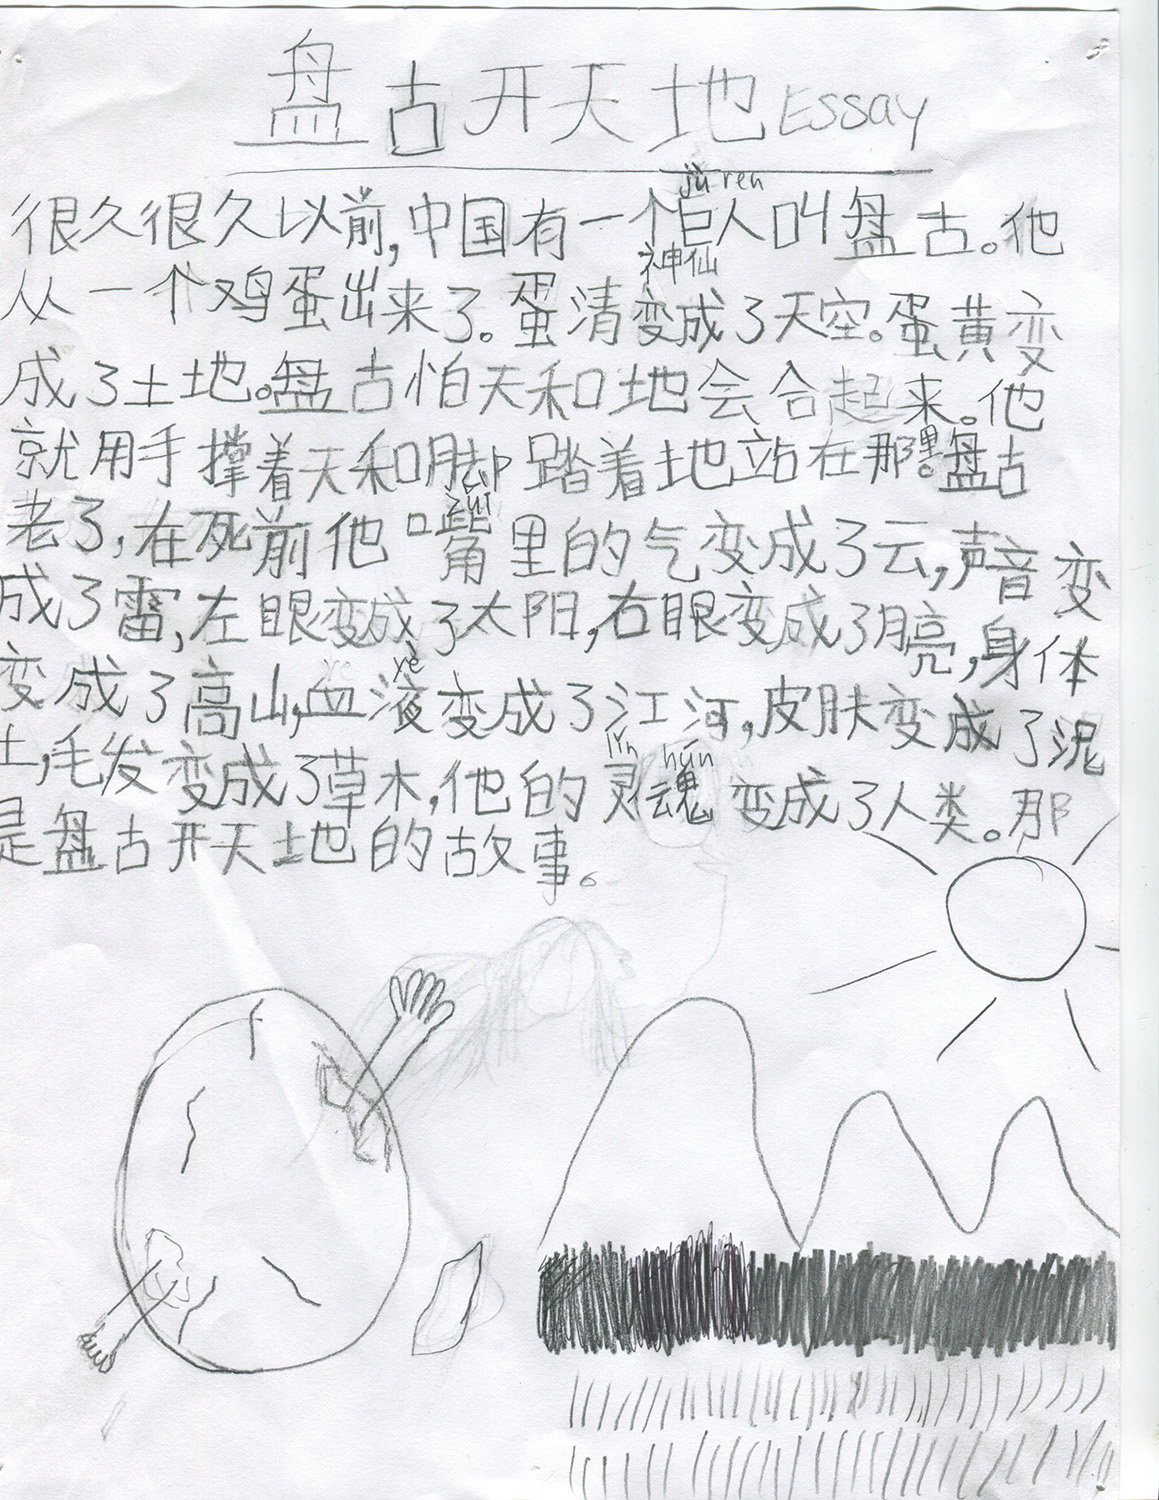 盘古开天地 Essay
jù ren
很久很久以前,中国有一个巨人叫盘古。他
神仙
从一个鸡蛋出来了。蛋清变成了天空。蛋黄变
成了土地。盘古怕天和地会合起来。他
就用手撑着天和脚踏着地站在那里。盘古
zuǐ
老了,在死前他嘴里的气变成了云,声音变
成了雷,左眼变成了太阳,右眼变成了月亮,身体
yè
变成了高山,血液变成了江河,皮肤变成了泥
lín hún
土,毛发变成了草木,他的灵魂变成了人类。那
是盘古开天地的故事。